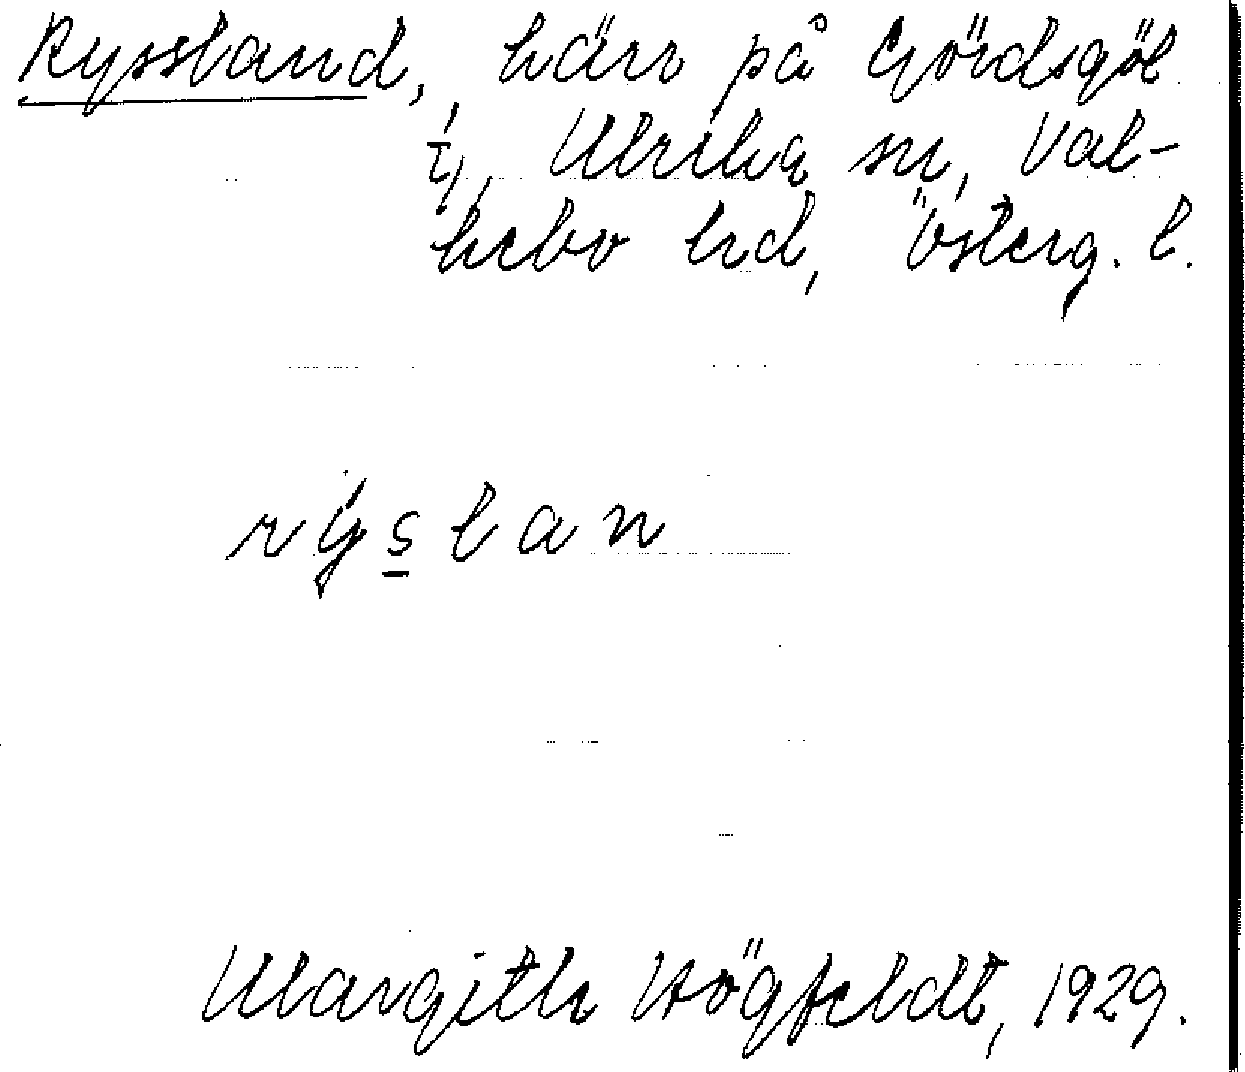 Ryssland, kärr på Gördsgöl
i, Ulrika sn, Val-
kebo hd, Österg. l.
rýs̲lan
Margith Högfeldt, 1929.